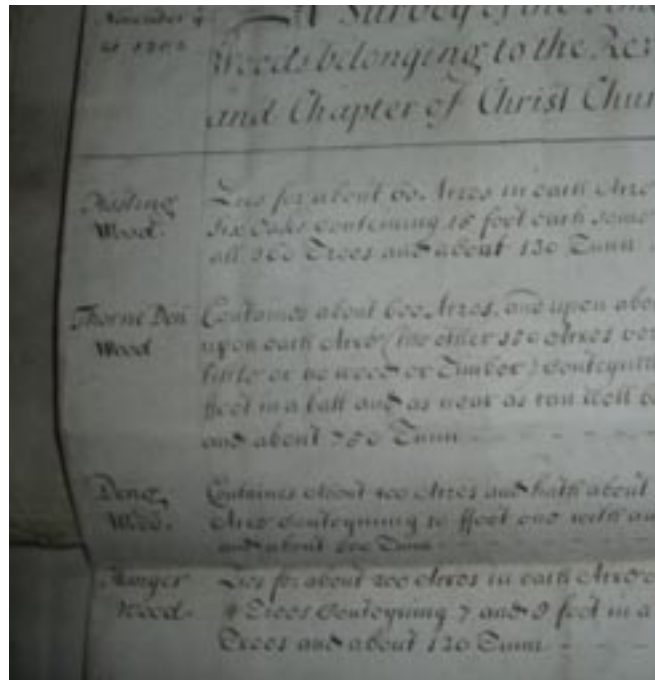 November
A Survey of the
Woods belonging to the Re
and Chapter of Christ Chur
Wood.
Lies for about 60 Acres in each Acre
Six Oakes conteining 18 foot each some
all 360 Trees and about 130 Tunn
Thorne Den
Wood
Containes about 600 Acres, and upon abo
upon each Acre (the other Acres ver
little or no wood or Timber) conteyni
ffoot in a ball and as near as can well b
and about 700 Tunn
Wood.
Containes about 400 Acres and hath about
Acre conteyning 10 ffoot one with an
and about 600 Tunn
Hunger
Wood.
Lies for about 200 Acres in each Acre
4 Trees Conteyning 7 and 8 foot in a
Trees and about 120 Tunn